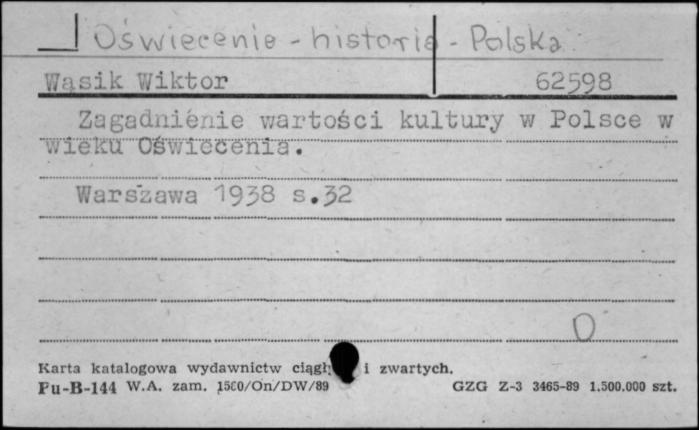 Oświecenie - historia - Polska
Wąsik Wiktor 62598
Zagadnienie wartości kultury w Polsce w
wieku Oświecenia.
Warszawa 1938 s.32
O
Karta katalogowa wydawnictw i zwartych.
Pu-B-144 W.A. zam. 1560/On/DW/89 GZG Z-3 3465-89 1.500.000 szt.